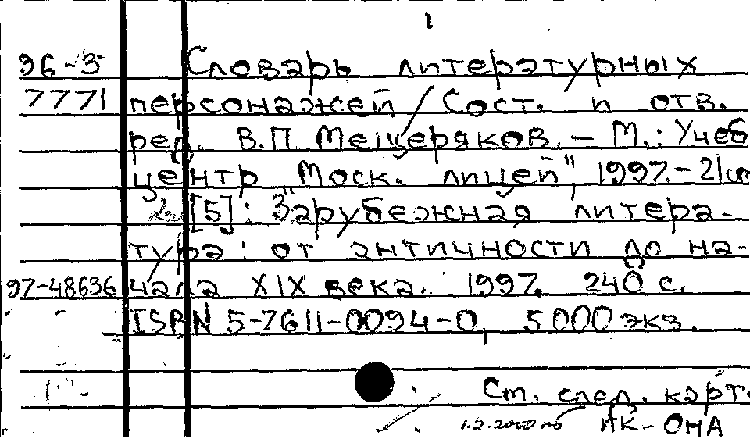 1
96-3 Словарь литературных
7771 персонажей / Сост. и отв.
ред. В.П. Мещеряков. — М.: Учеб.
центр "Моск. лицей", 1997. - 21 см
[5]: Зарубежная литера-
тура: от античности до на-
97-48636 чала XIX века. 1997. 240 с.
ISBN 5-7611-0094-0, 5000 экз.
См. след. карт.
НК-ОНА